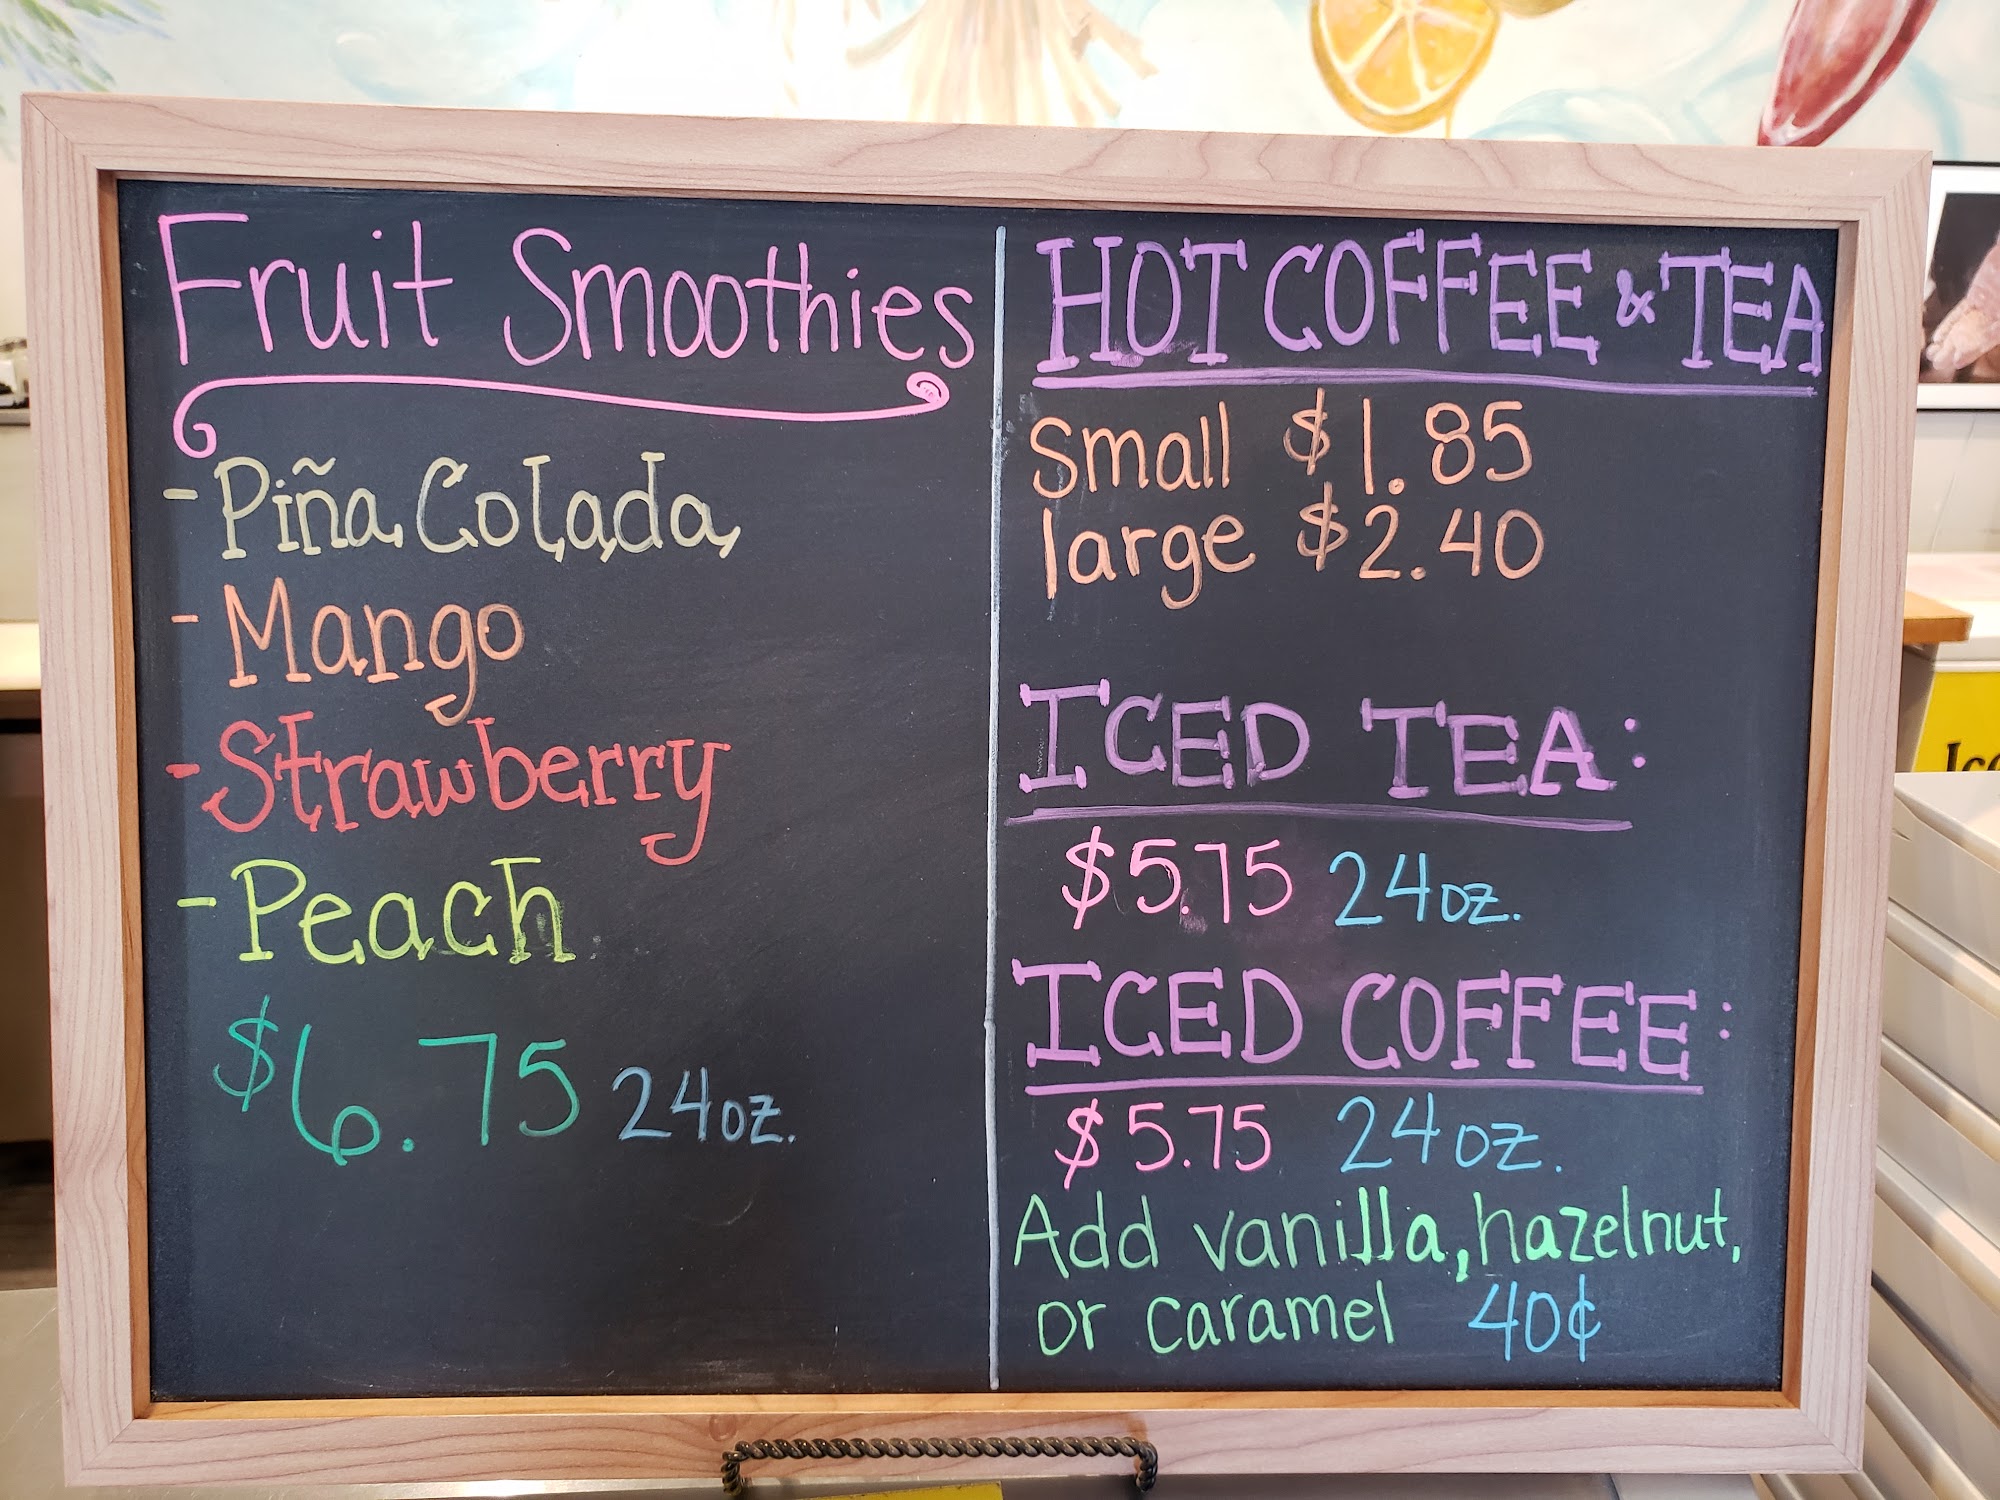 Fruit Smoothies
- Piña Colada
- Mango
- Strawberry
- Peach
$6.75 24oz.
HOT COFFEE & TEA
small $1.85
large $2.40
ICED TEA:
$5.75 24oz.
ICED COFFEE:
$5.75 24oz.
Add vanilla, hazelnut,
or caramel 40¢